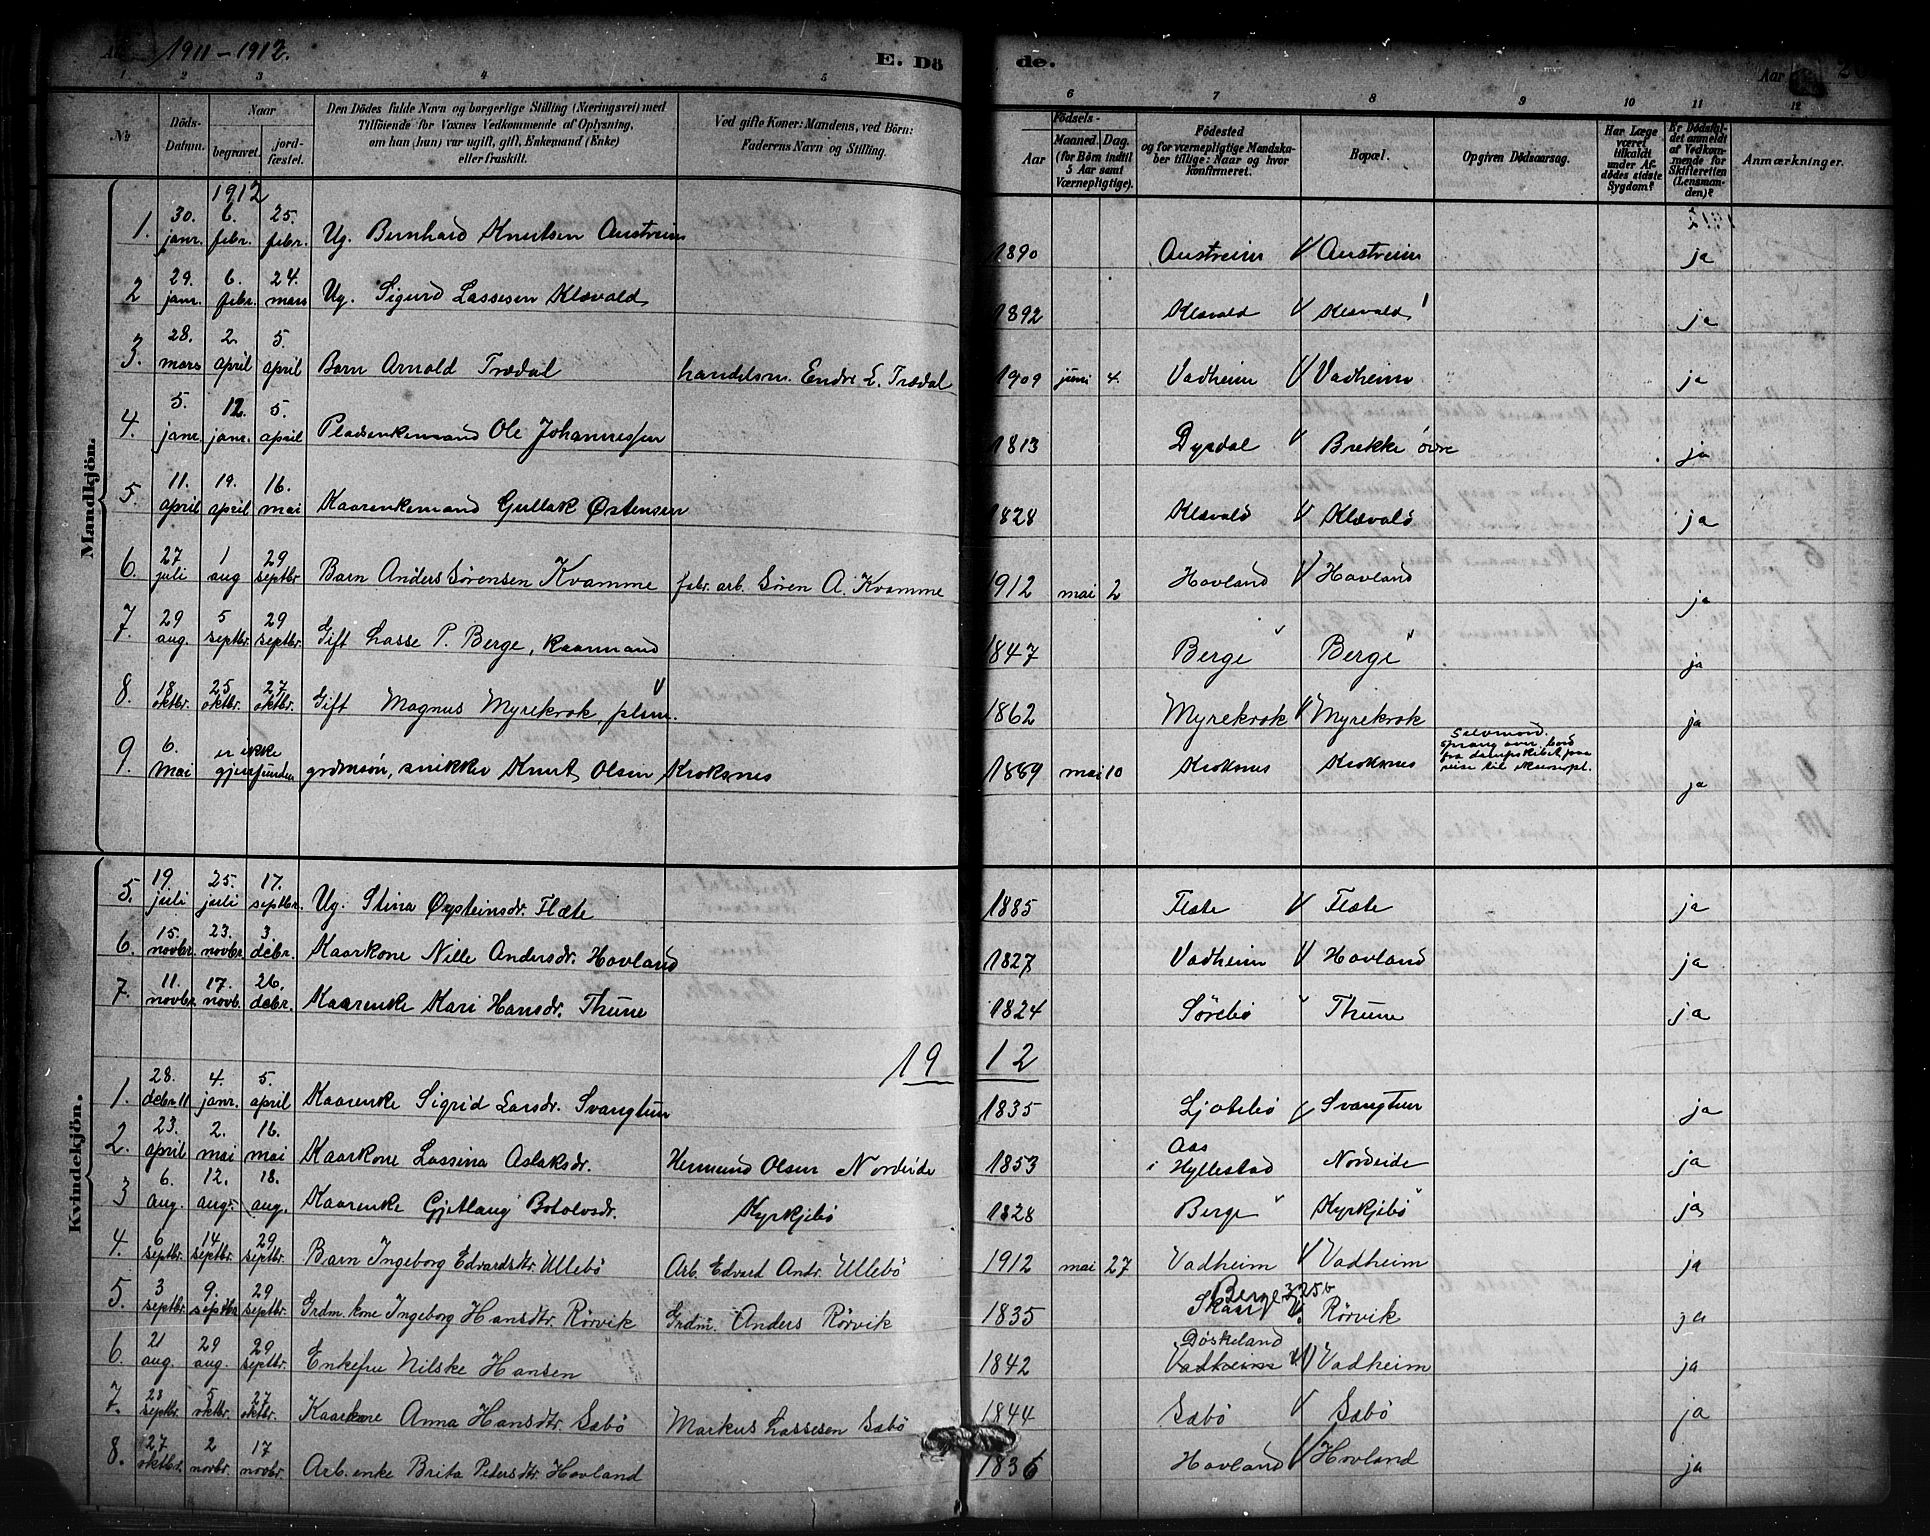 Aar 1911–1912.
E. Dö
de.
Aar
1. 2 3 4 5
6 7 8 9 10 11 12
No
Döds-
Datum.
Naar
begravet.
jord-
fæstet.
Den Dödes fulde Navn og borgerlige Stilling (Næringsvei) med
Tilföiende for Voxnes Vedkommende af Oplysning,
om han (hun) var ugift, gift, Enkemand (Enke)
eller fraskilt.
Ved gifte Koner: Mandens, ved Börn:
Faderens Navn og Stilling.
Födsels-
Aar
Maaned. Dag.
(for Börn indtil
5 Aar samt
Værnepligtige).
Födested
og for værnepligtige Mandska-
ber tillige: Naar og hvor
konfirmeret.
Bopæl.
Opgiven Dödsaarsag.
Har Læge
været
tilkaldt
under Af-
dödes sidste
Sygdom?
Er Dödsfal-
det anmeldt
af Vedkom-
mende for
Skifteretten
(Lensman-
den)?
Anmærkninger.
Mandkjön.
1912
1. 30. janr. 6. febr. 25. febr. Ug. Bernhard Knutsen Austreim 1890 Austreim Austreim ja
2 29. janr. 6. febr. 24. mars Ug. Sigurd Lassesen Klævold 1892 Klævold Klævold ja
3. 28. mars 2. april 5. april Barn Arnold Trædal handelsm. Endre L. Trædal 1909 juni 4. Vadheim Vadheim ja
4. 5. janr. 12. janr. 5. april Pladsenkemand Ole Johannessen 1813 Dysdal Brekke øvre ja
5. 11. april 19. april 16. mai Kaarenkemand Gullak Østensen 1828 Klævold Klævold ja
6. 27 juli 1 aug 29 septbr Barn Anders Sørensen Kvamme fabr. arb. Søren A. Kvamme 1912 mai 2 Hovland Hovland ja
7. 29 aug. 5 septbr. 29 septbr. Gift Lasse P. Berge, kaarmand 1847 Berge Berge ja
8. 18 oktbr. 25 oktbr. 27 oktbr. Gift Magnus Myrekrok, plsm. 1862 Myrekrok Myrekrok ja
9. 6. mai er ikke gjenfunden grdmsøn, snikker Knut Olsen Kroksnes 1889 mai 10 Kroksnes Kroksnes
Selvmord.
sprang over bord
fra dampskibet paa
reise til
ja
Kvindekjön.
5. 19. juli 25. juli 17. septbr. Ug. Stina Øysteinsdr. Flæte 1885 Flæte Flæte ja
6. 15. novbr. 23. novbr. 3. debr. Kaarkone Nille Andersdr. Hovland 1827 Vadheim Hovland ja
7. 11. novbr. 17. novb. 26. debr. Kaarenke Kari Hansdr. Thune 1824 Sørebø Thune ja
1912
1. 28. debr. 11 4. janr. 5. april Kaarenke Sigrid Larsdr. Svangtun 1835 Ljotebø Svangtun ja
2. 23. april 2. mai 16. mai Kaarkone Lassina Aslaksdr. Hermund Olsen Nordeide 1853 Aas i Hyllestad Nordeide ja
3 6. aug. 12. aug. 18. aug. Kaarenke Gjetlaug Botolvsdr. Kyrkjebø 1828 Berge Kyrkjebø ja
4. 6 septbr. 14 septbr. 29 septbr. Barn Ingeborg Edvardsdtr. Ullebø Arb. Edvard Andr. Ullebø 1912 mai 27 Vadheim Vadheim ja
5. 3 septbr. 9. septbr. 29 septbr. Grdm. kone Ingeborg Hansdtr. Rørvik Grdm. Anders Rørvik 1835 Berge 3256 Rørvik ja
6. 21 aug. 29 aug. 29 septbr. Enkefru Nilske Hansen 1842 Døskeland Vadheim Vadheim ja
7. 28 septbr. 5 oktbr. 27 oktbr. Kaarkone Anna Hansdtr. Sæbø Markus Lassesen Sæbø 1844 Sæbø Sæbø ja
8. 27 oktbr. 2 novbr. 17 novbr. Arb. enke Brita Petersdtr. Hovland 1836 Hovland Hovland ja